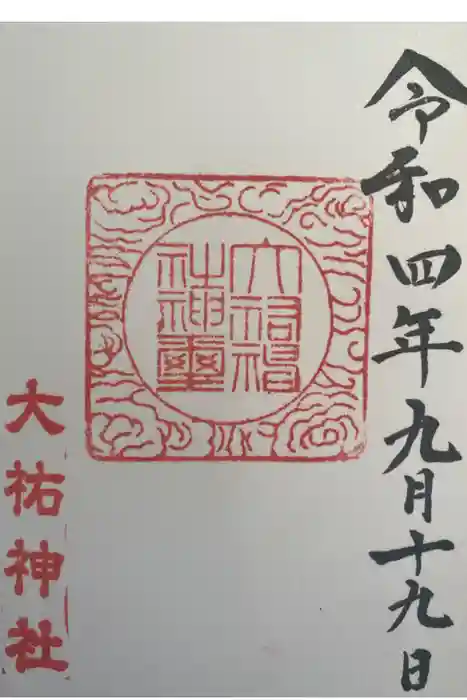 令和四年九月十九日
大祐神
社神璽
大祐神社